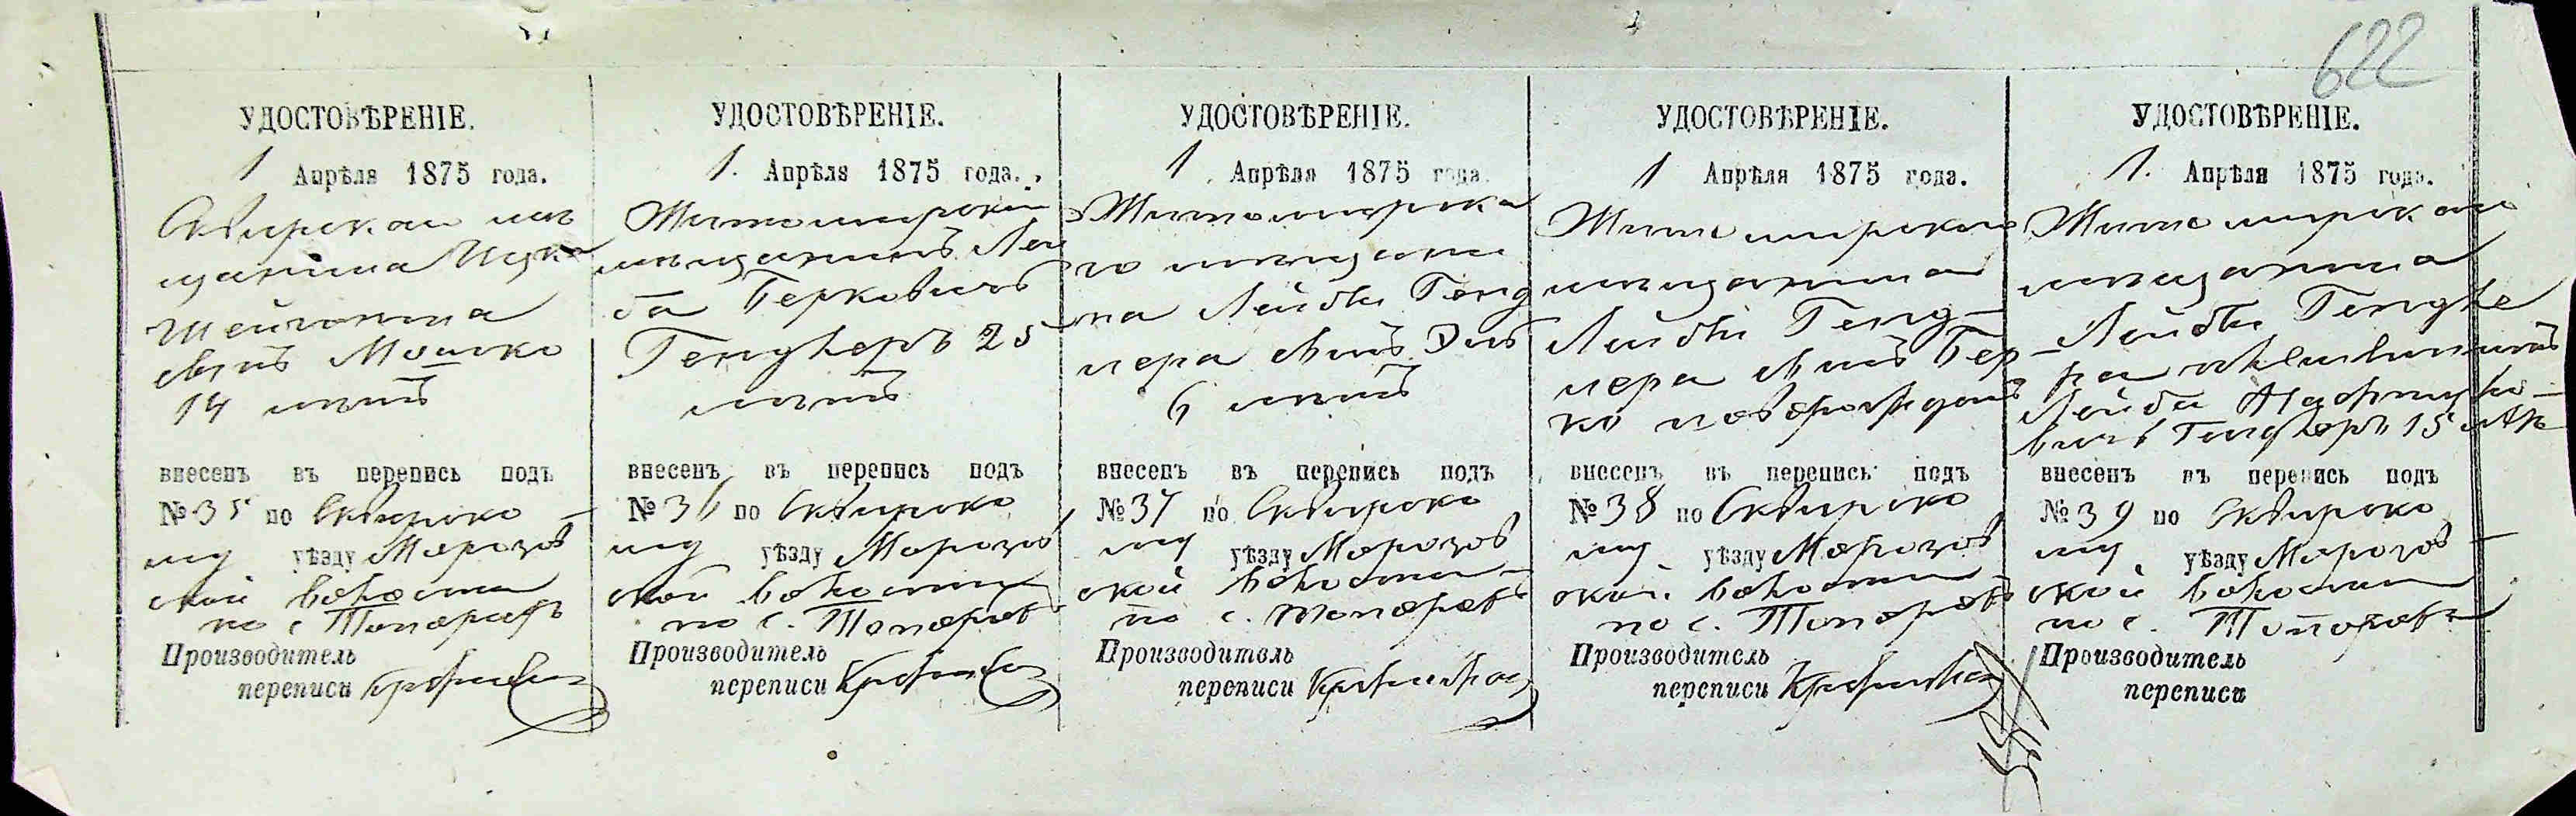 622
УДОСТОВѢРЕНІЕ.
1 Апрѣля 1875 года.
Сквирскаго мѣ
щанина Ицка
Шейнмана
сынъ Мошко
14 лѣтъ
внесенъ въ перепись подъ
№ 35 по Сквирско
му уѣзду Морозов
ской волости
по с. Топоравѣ
Производитель
переписи
УДОСТОВѢРЕНІЕ.
1. Апрѣля 1875 года.
Житомирскій
мѣщанинъ Лей
ба Берковичъ
Гендлеръ 25
лѣтъ
внесенъ въ перепись подъ
№ 36 по Сквирско
му уѣзду Морозов
ской волости
по с. Топоровѣ
Производитель
переписи
УДОСТОВѢРЕНІЕ.
1 Апрѣля 1875 года.
Житомирска
го мѣщани
на Лейбы Генд
лера сынъ
6 лѣтъ
внесенъ въ перепись подъ
№ 37 по Сквирско
му уѣзду Морозов
ской волости
по с. Топоровѣ
Производитель
переписи
УДОСТОВѢРЕНІЕ.
1 Апрѣля 1875 года.
Житомирскаго
мѣщанина
Лейбы Генд-
лера сынъ Бер
ко новорожден
внесенъ въ перепись подъ
№ 38 по Сквирско
му уѣзду Морозов
ской волости
по с. Топоровѣ
Производитель
переписи
УДОСТОВѢРЕНІЕ.
1. Апрѣля 1875 года.
Житомирскаго
мѣщанина
Лейбы Гендле
ра племянникъ
Лейба Нафтуло-
вичъ Гендлеръ 15 лѣ
внесенъ въ перепись подъ
№ 39 по Сквирско
му уѣзду Морозов-
ской волости
по с. Топоровѣ
Производитель
переписи